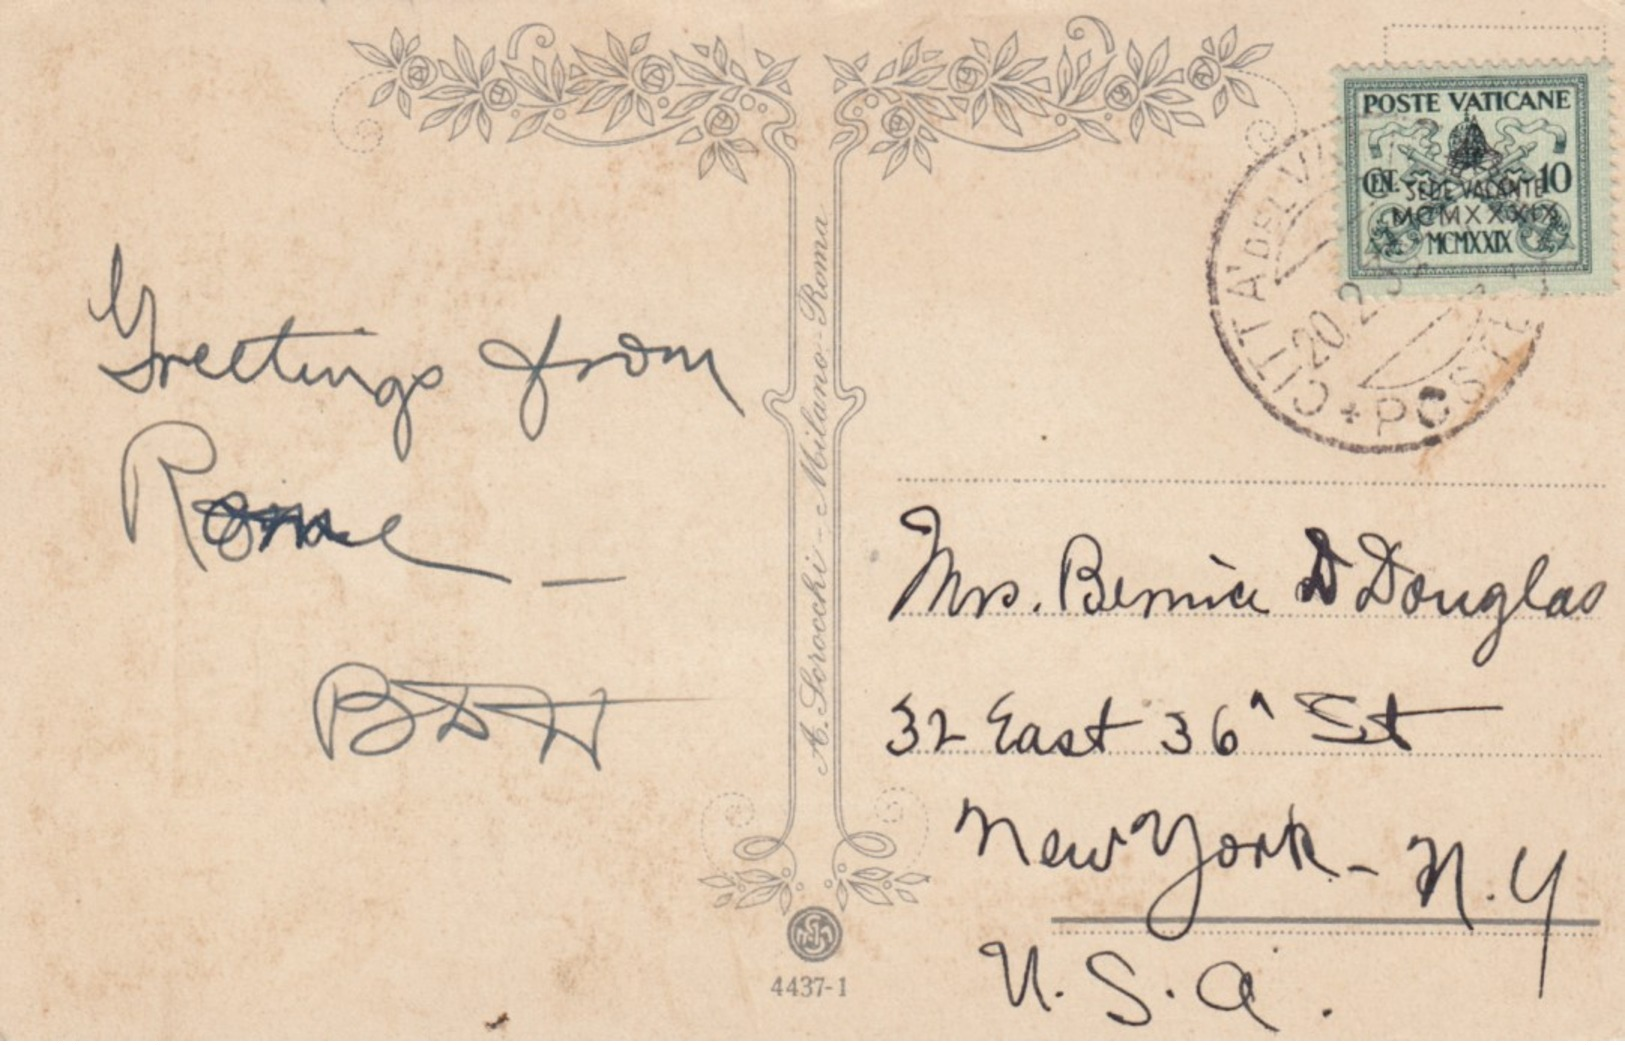 POSTE VATICANE
CEN. 10
SEDE VACANTE
MCMXXXIX
MCMXXIX
CITTA' DEL
20.2
POSTE
Greetings from
Rome —
A. Scrocchi - Milano-Roma
Mrs. Bernice D Douglas
32 East 36 St
New York - N.Y
U.S.A.
4437-1